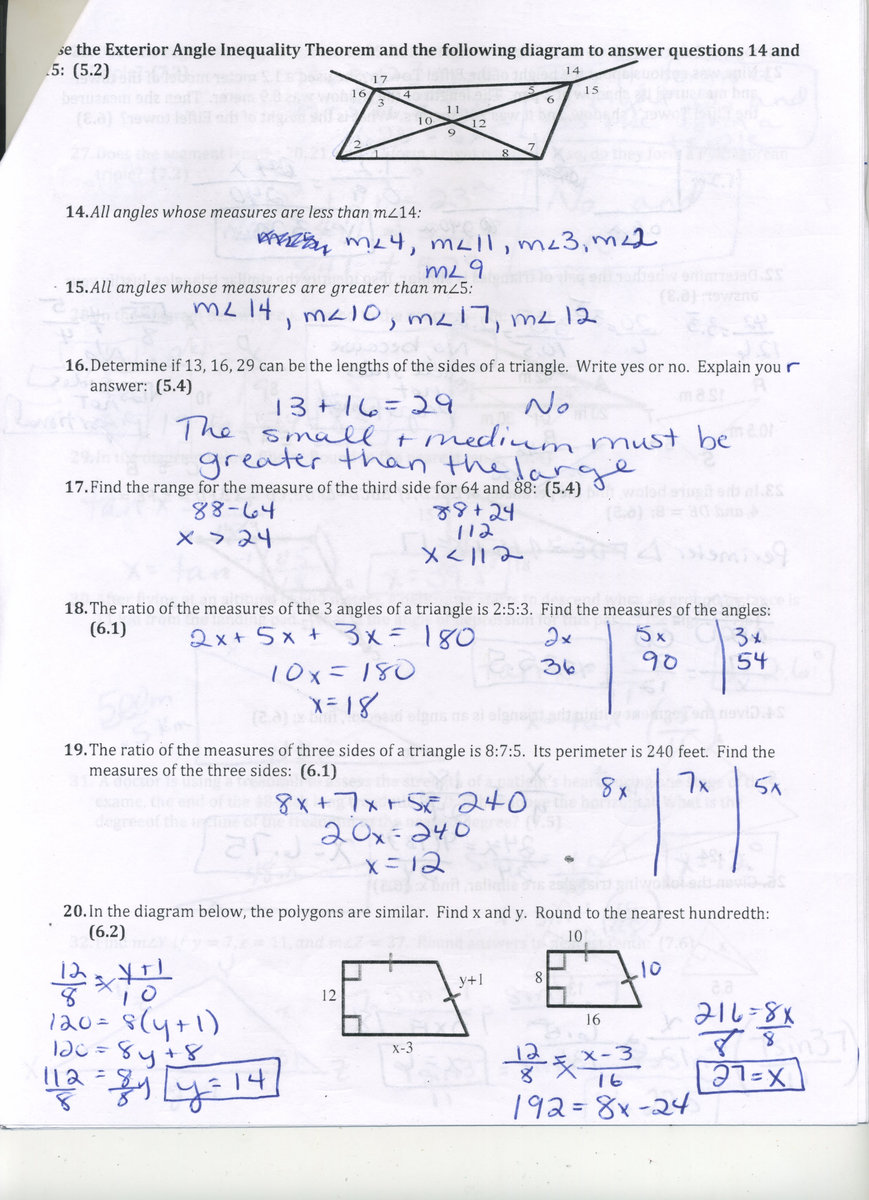 se the Exterior Angle Inequality Theorem and the following diagram to answer questions 14 and
15: (5.2)
17
14
16
4
5
15
3
6
11
10
12
9
2
7
1
8
14. All angles whose measures are less than m∠14:
m∠4, m∠11, m∠3, m∠2
m∠9
15. All angles whose measures are greater than m∠5:
m∠14, m∠10, m∠17, m∠12
16. Determine if 13, 16, 29 can be the lengths of the sides of a triangle. Write yes or no. Explain you r
answer: (5.4)
13 + 16 = 29 No
The small + medium must be
greater than the large
17. Find the range for the measure of the third side for 64 and 88: (5.4)
88-64 88+24
x > 24 112
x < 112
18. The ratio of the measures of the 3 angles of a triangle is 2:5:3. Find the measures of the angles:
(6.1)
2x + 5x + 3x = 180 2x 5x 3x
10x = 180 36 90 54
x = 18
19. The ratio of the measures of three sides of a triangle is 8:7:5. Its perimeter is 240 feet. Find the
measures of the three sides: (6.1)
8x 7x 5x
8x + 7x + 5x = 240
20x = 240
x = 12
20. In the diagram below, the polygons are similar. Find x and y. Round to the nearest hundredth:
(6.2)
12/8 = y+1/10
120 = 8(y+1)
120 = 8y + 8
112/8 = 8y/8 y = 14
12
y+1
x-3
10
8
10
16
12/8 = x-3/16
192 = 8x - 24
216/8 = 8x/8
27 = x